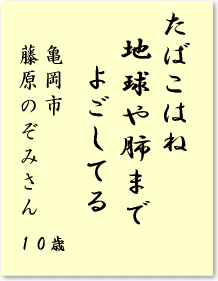 たばこはね
地球や肺まで
よごしてる
亀岡市
藤原のぞみさん
１０歳